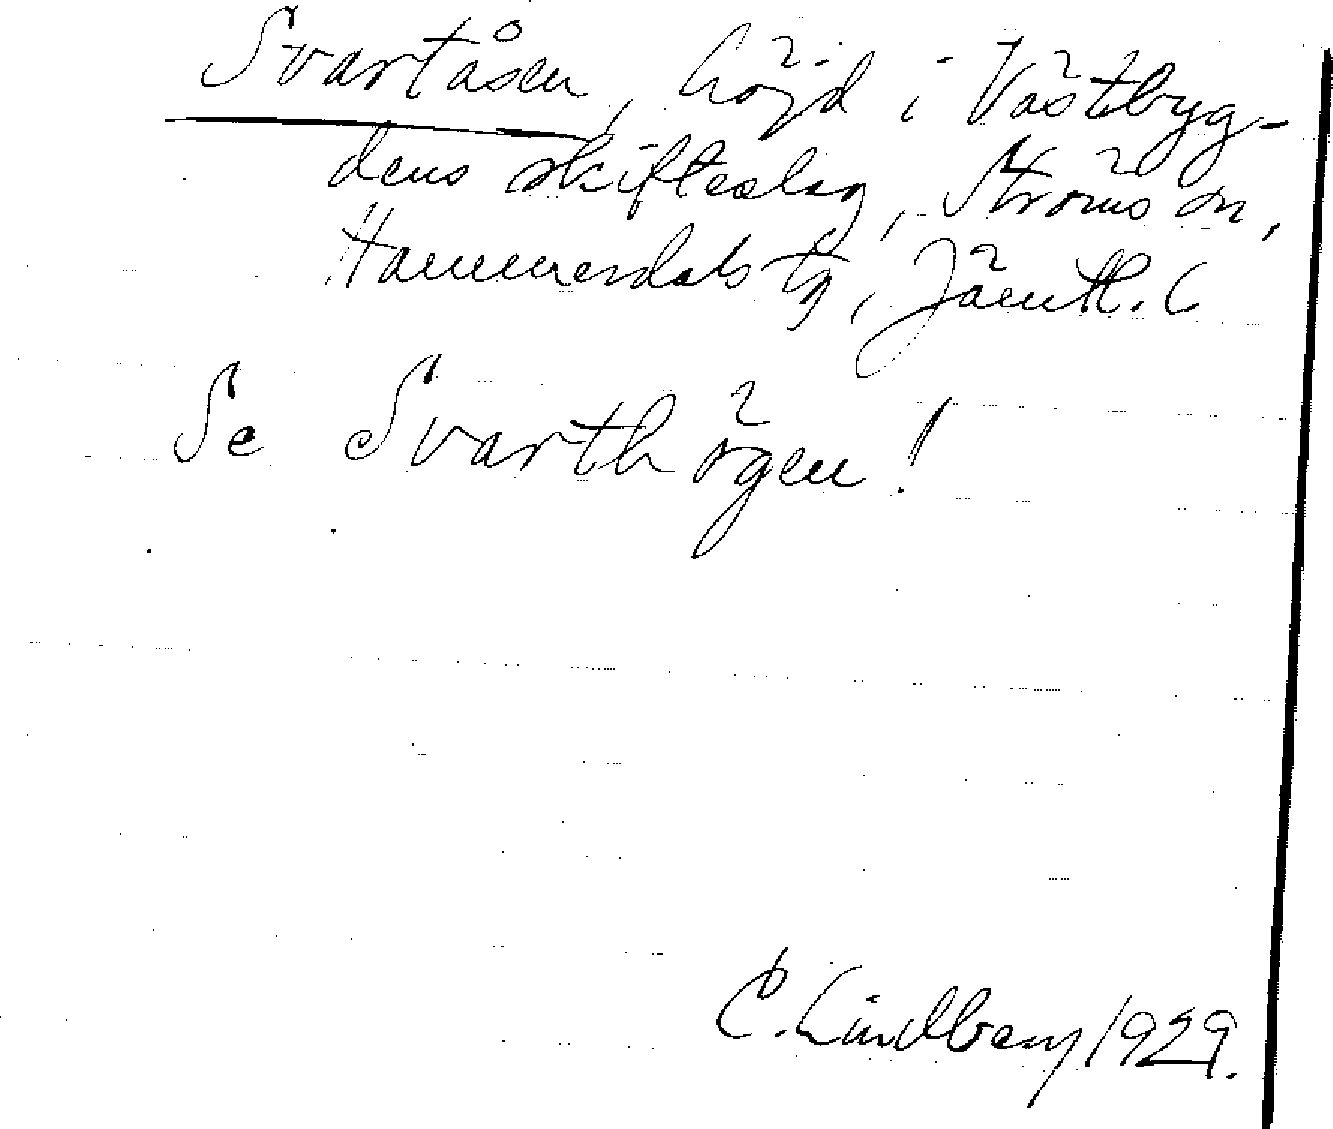 Svartåsen, höjd i Västbyg-
dens skifteslag, Ströms sn,
Hammerdals tg, Jämtl. l
Se Svarthögen!
C. Lindberg 1929.